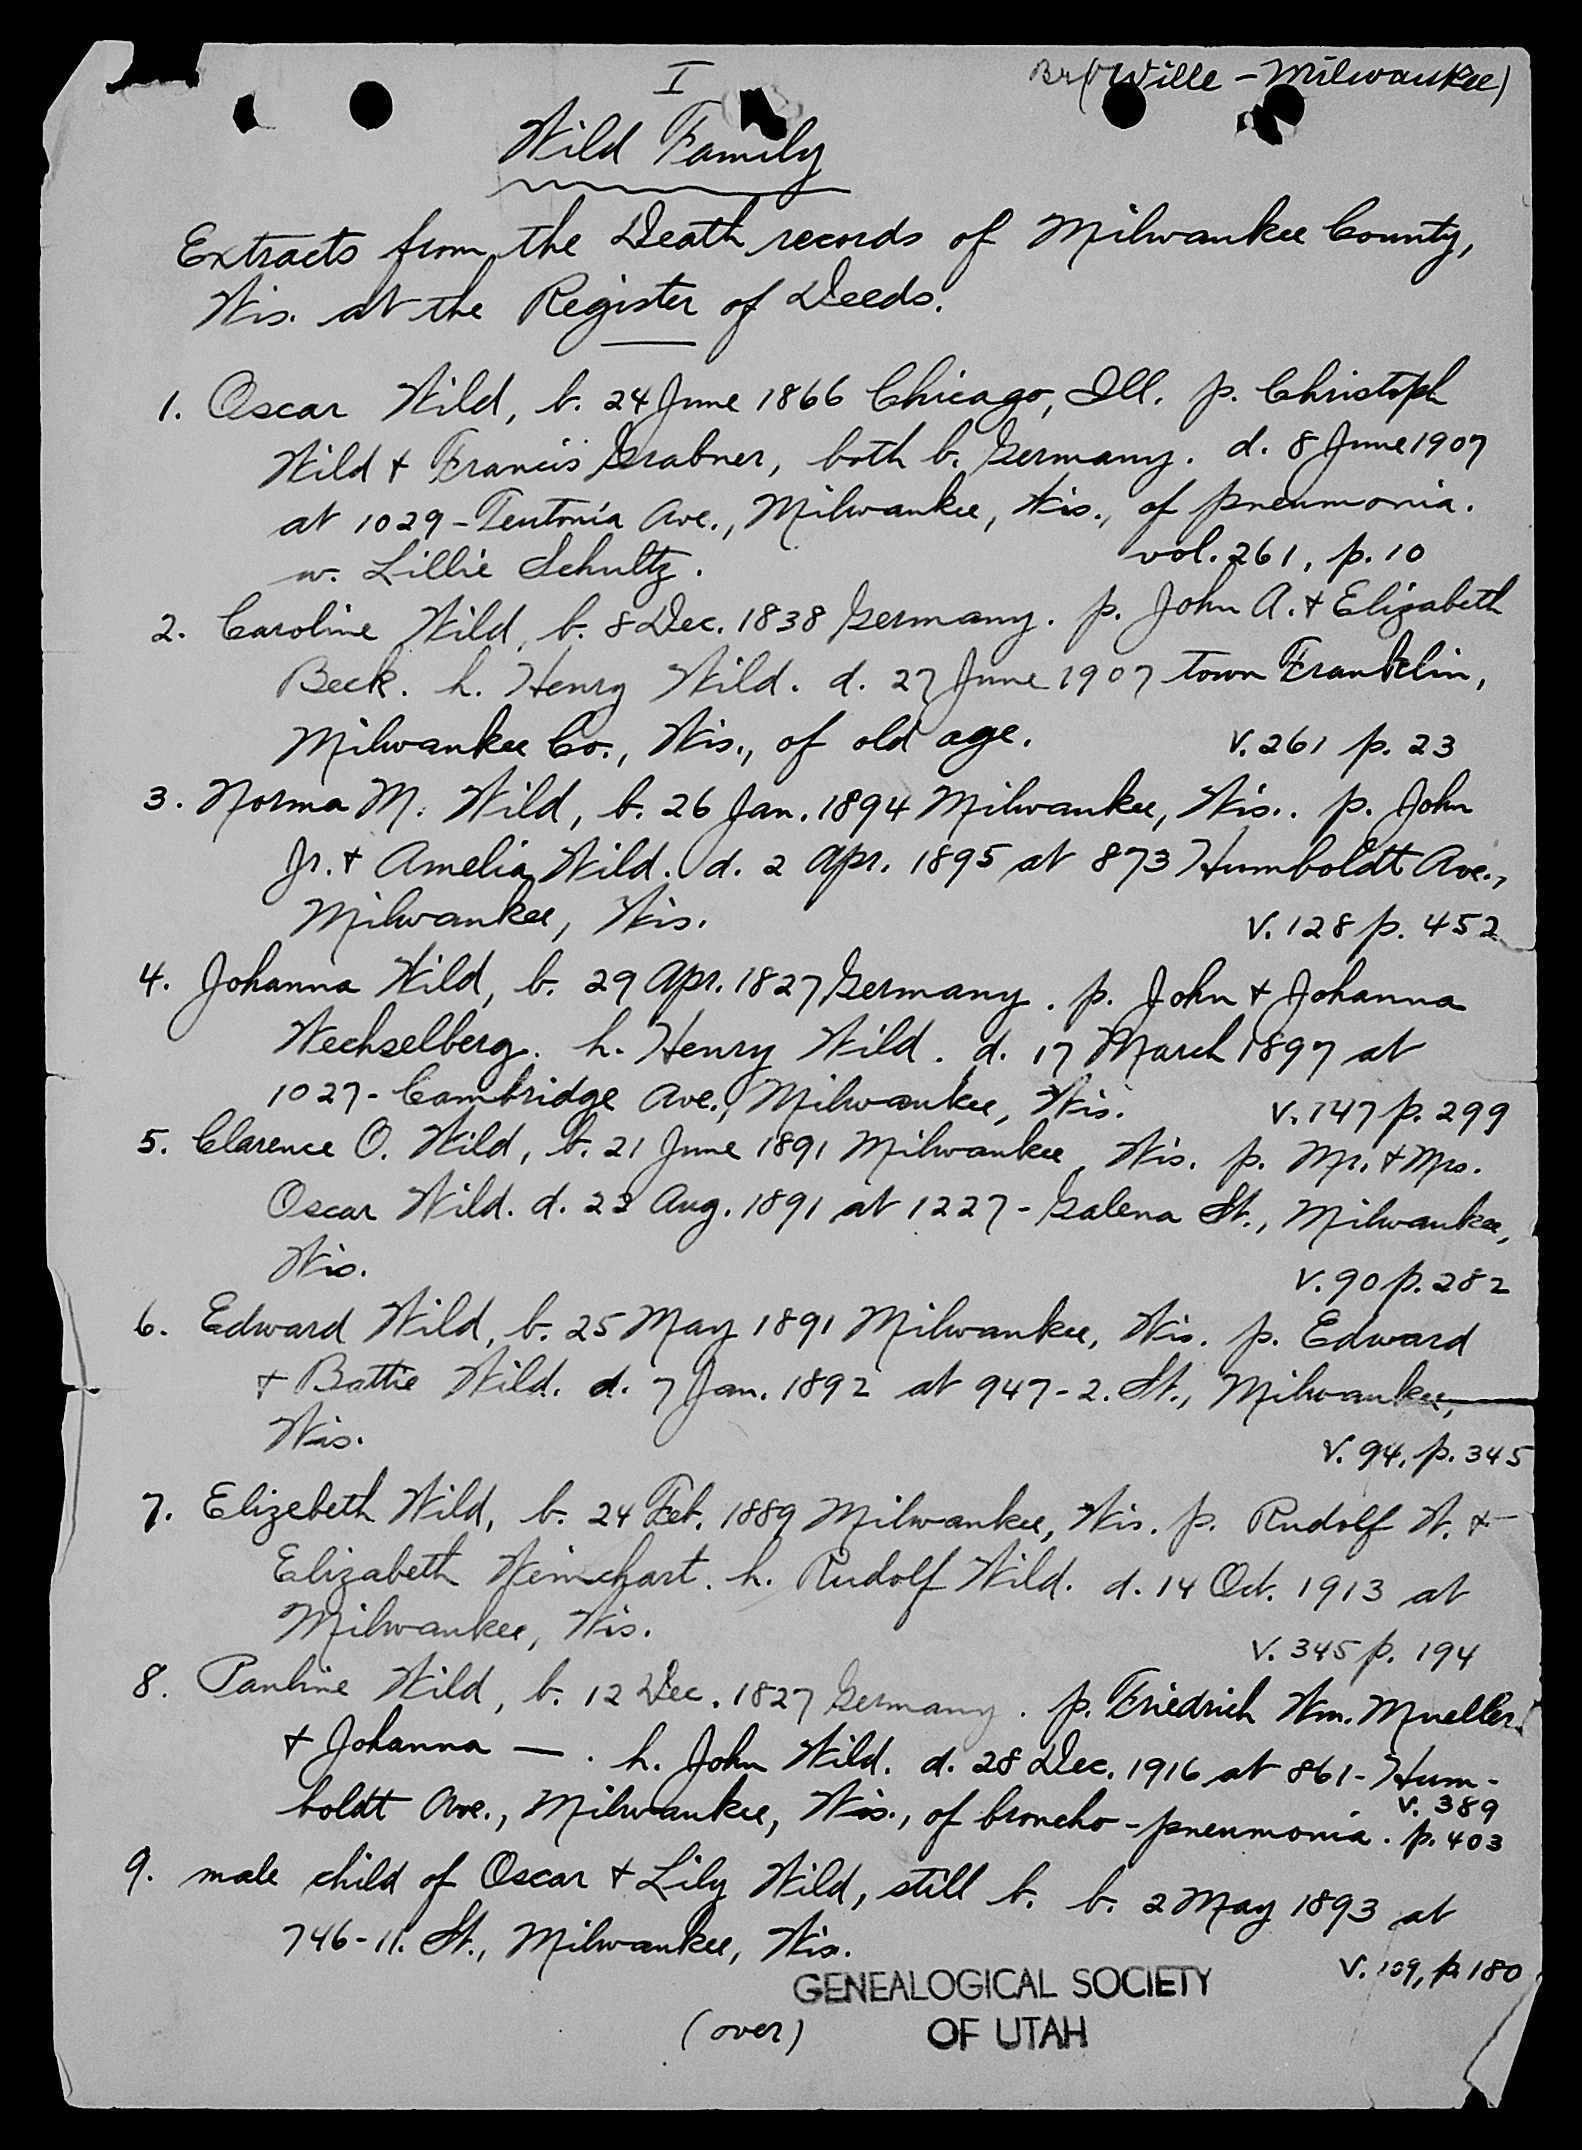 I
(Wille - Milwaukee)
Wild Family
Extracts from the Death records of Milwaukee County,
Wis. at the Register of Deeds.
1. Oscar Wild, b. 24 June 1866 Chicago, Ill. p. Christoph
Wild + Francis Grabner, both b. Germany. d. 8 June 1907
at 1029-Teutonia Ave., Milwaukee, Wis., of pneumonia.
w. Lillie Schultz. vol. 261, p. 10
2. Caroline Wild, b. 8 Dec. 1838 Germany. p. John A. + Elizabeth
Beck. h. Henry Wild. d. 27 June 1907 town Franklin,
Milwaukee Co., Wis., of old age. V. 261 p. 23
3. Norma M. Wild, b. 26 Jan. 1894 Milwaukee, Wis.. p. John
Jr. + Amelia Wild. d. 2 Apr. 1895 at 873 Humboldt Ave.,
Milwaukee, Wis. V. 128 p. 452
4. Johanna Wild, b. 29 Apr. 1827 Germany. p. John + Johanna
Wechselberg. h. Henry Wild. d. 17 March 1897 at
1027-Cambridge Ave., Milwaukee, Wis. V. 147 p. 299
5. Clarence O. Wild, b. 21 June 1891 Milwaukee, Wis. p. Mr. + Mrs.
Oscar Wild. d. Aug. 1891 at 1227-Galena St., Milwaukee,
Wis. V. 90 p. 282
6. Edward Wild, b. 25 May 1891 Milwaukee, Wis. p. Edward
+ Battie Wild. d. 7 Jan. 1892 at 947-2. St., Milwaukee,
Wis. V. 94, p. 345
7. Elizebeth Wild, b. 24 Feb. 1889 Milwaukee, Wis. p. Rudolf W. +
Elizabeth h. Rudolf Wild. d. 14 Oct. 1913 at
Milwaukee, Wis. V. 345 p. 194
8. Pauline Wild, b. 12 Dec. 1827 Germany. p. Friedrich Wm. Mueller
+ Johanna —. h. John Wild. d. 28 Dec. 1916 at 861-Hum-
boldt Ave., Milwaukee, Wis., of broncho-pneumonia. V. 389
p. 403
9. male child of Oscar + Lily Wild, still b. b. 2 May 1893 at
746-11. St., Milwaukee, Wis.
V. 109, p. 180
GENEALOGICAL SOCIETY
OF UTAH
(over)